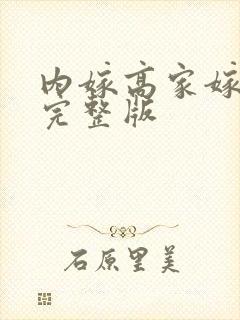 内嫁高家嫁
完整版
石原里美